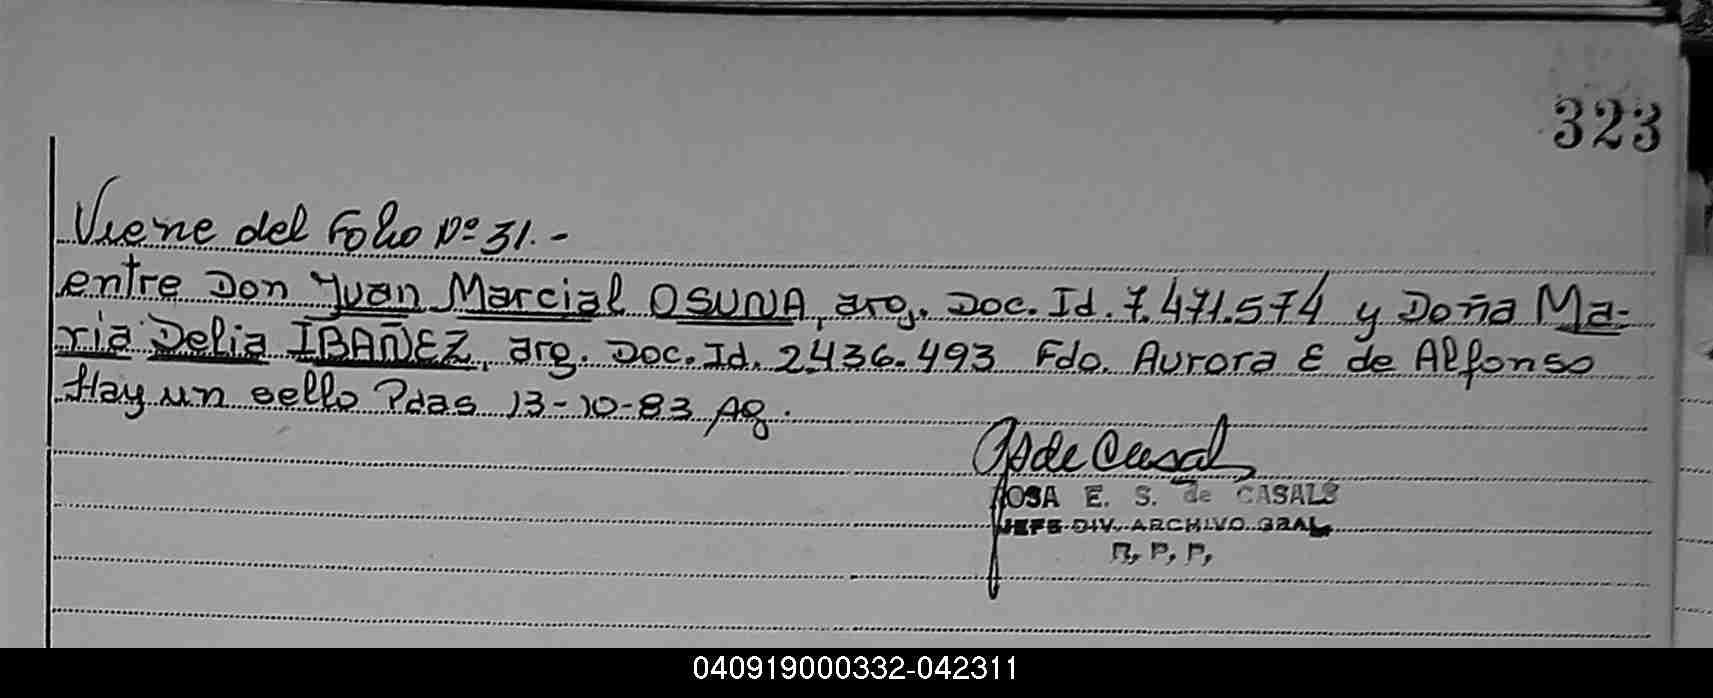 323
Viene del Folio Nº 31.-
entre Don Juan Marcial OSUNA, arg. Doc. Id. 7.471.574 y Doña Ma-
ria Delia IBAÑEZ, arg. Doc. Id. 2.436.493 Fdo. Aurora E de Alfonso
Hay un sello Pdas 13-10-83 Ag.
de Casals
ROSA E. S. de CASALS
JEFE DIV. ARCHIVO GRAL.
R. P. P.
040919000332-042311